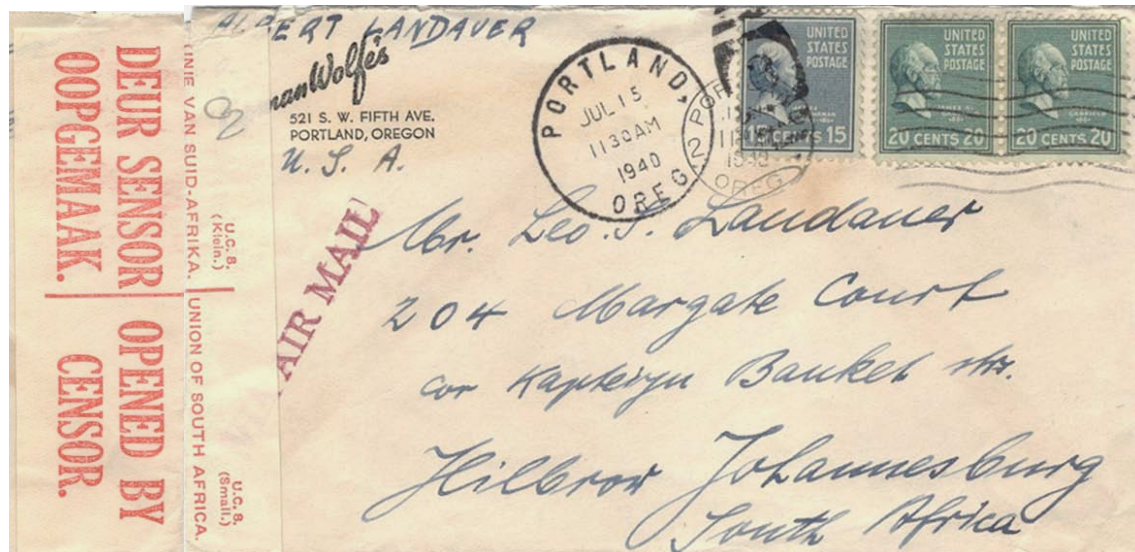 DEUR SENSOR
OOPGEMAAK.
OPENED BY
CENSOR.
VAN SUID-AFRIKA.
UNION OF SOUTH AFRICA.
U.C. 8.
(Klein.)
U.C. 8.
(Small.)
ALBERT LANDAUER
Wolfe's
521 S. W. FIFTH AVE.
PORTLAND, OREGON
U. S. A.
AIR MAIL
PORTLAND,
JUL 15
11 30 AM
1940
OREG.
2
OREG
UNITED
STATES
POSTAGE
CENTS 15
UNITED
STATES
POSTAGE
20 CENTS 20
UNITED
STATES
POSTAGE
20 CENTS 20
Mr. Leo. S. Landauer
204 Margate Court
cor Kapteijn Banket strs.
Hilbrow Johannesburg
South Africa